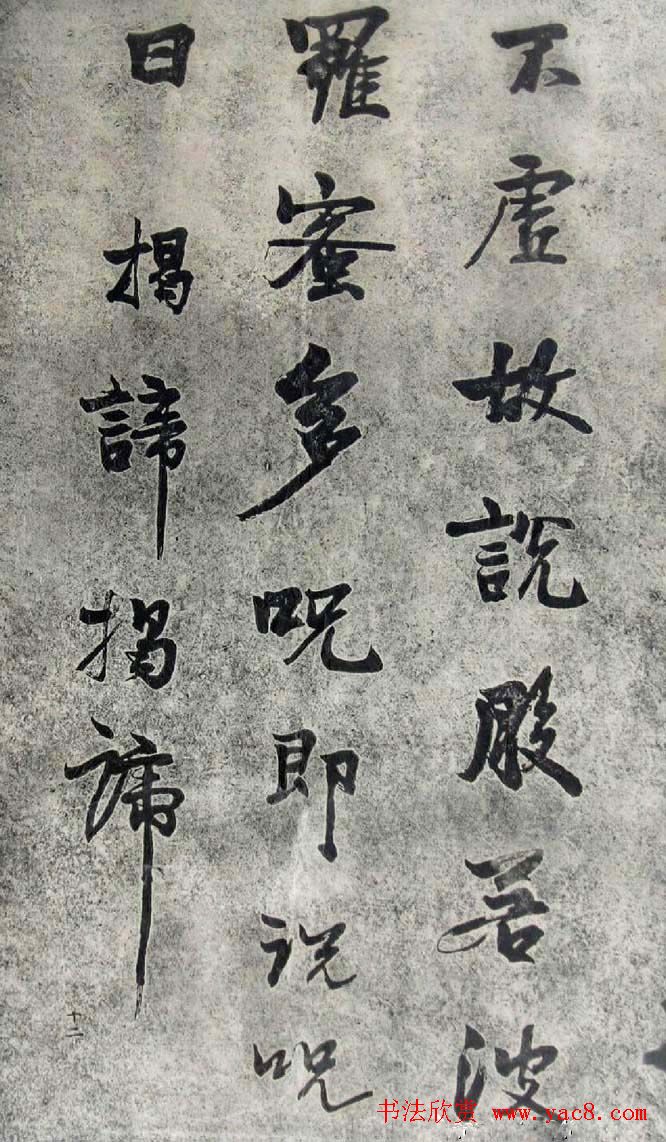 不虛故說般若波
羅蜜多咒即说咒
曰揭諦揭諦
十二
书法欣赏 www.yac8.com